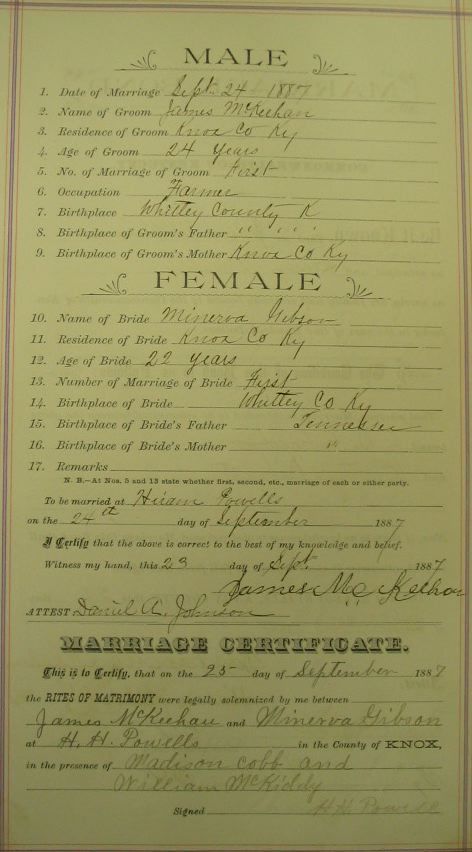 MALE
1. Date of Marriage Sept. 24 1887
2. Name of Groom James McKeehan
3. Residence of Groom Knox Co Ky
4. Age of Groom 24 years
5. No. of Marriage of Groom First
6. Occupation Farmer
7. Birthplace Whitley County K
8. Birthplace of Groom's Father " " " "
9. Birthplace of Groom's Mother Knox Co Ky
FEMALE
10. Name of Bride Minerva Gibson
11. Residence of Bride Knox Co Ky
12. Age of Bride 22 years
13. Number of Marriage of Bride First
14. Birthplace of Bride Whitley Co Ky
15. Birthplace of Bride's Father Tennessee
16. Birthplace of Bride's Mother "
17. Remarks
N. B.—At Nos. 5 and 13 state whether first, second, etc., marriage of each or either party.
To be married at Hiram Powells
on the 24th day of September 1887
I Certify that the above is correct to the best of my knowledge and belief.
Witness my hand, this 23 day of Sept. 1887
James McKeehan
ATTEST Daniel A. Johnson
MARRIAGE CERTIFICATE.
This is to Certify, that on the 25 day of September 1887
the RITES OF MATRIMONY were legally solemnized by me between
James McKeehan and Minerva Gibson
at H. H. Powells in the County of KNOX,
in the presence of Madison Cobb and
William McKiddy
Signed H H Powell